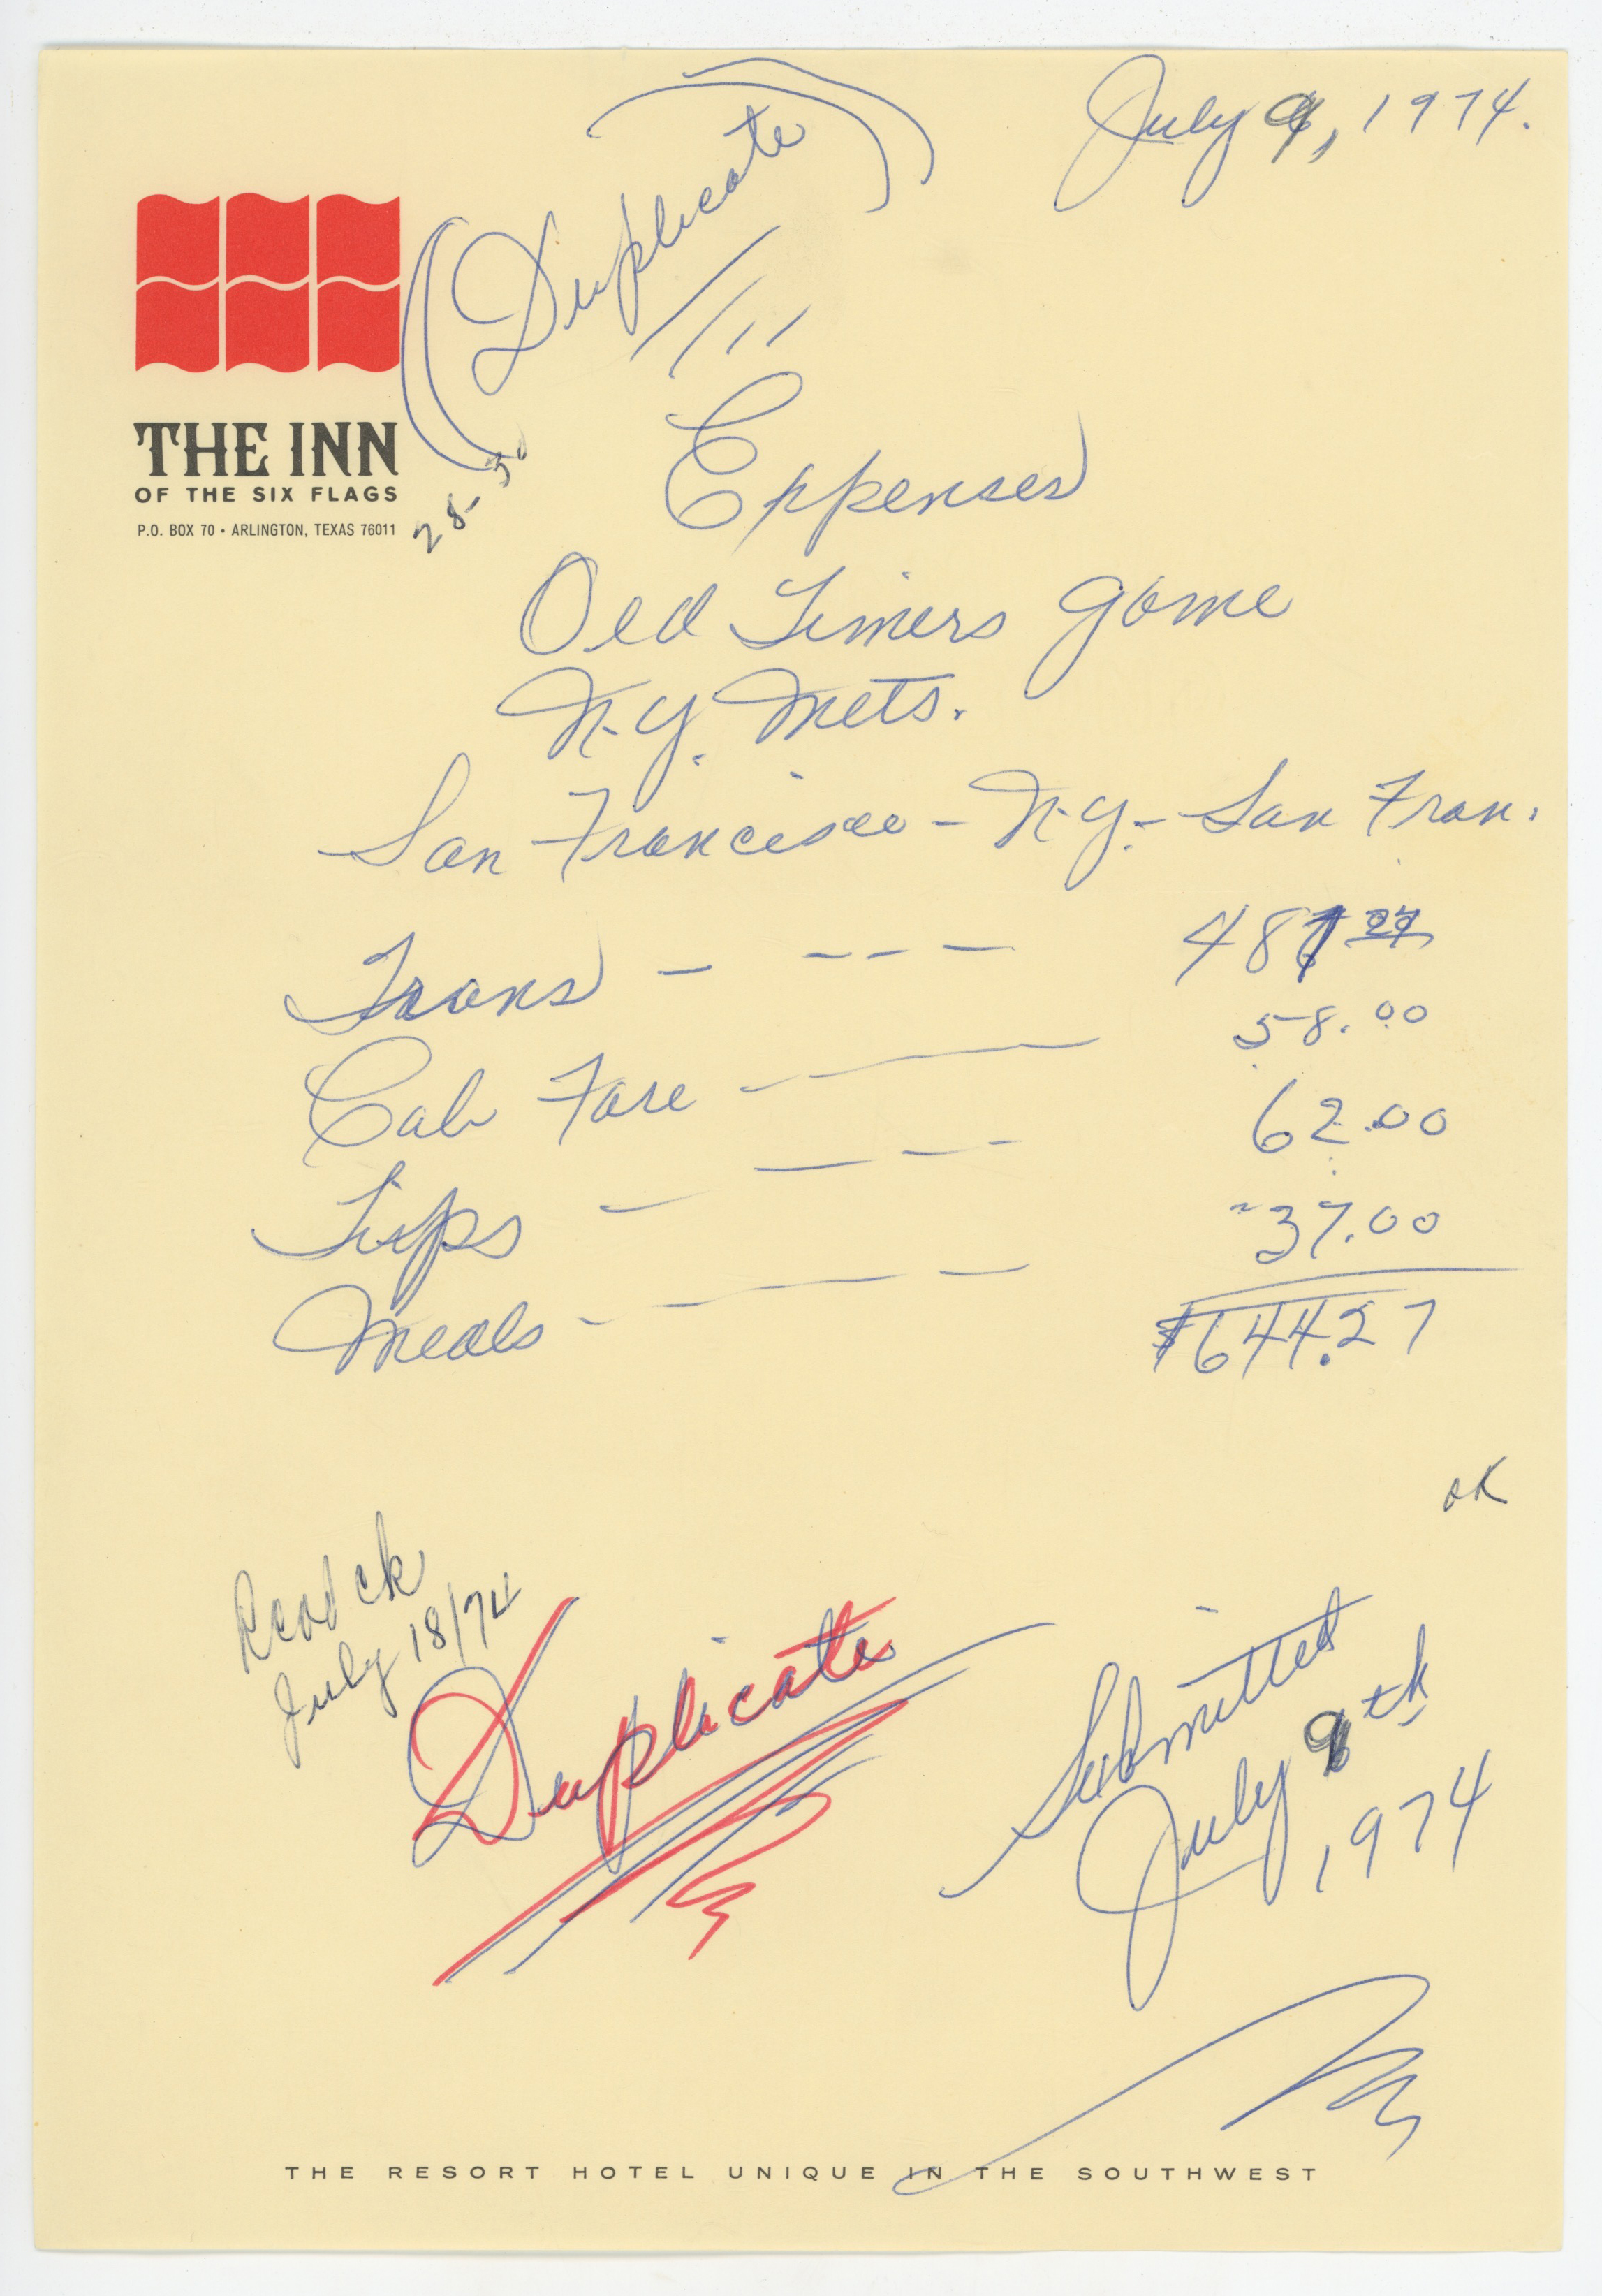 July 9, 1974.
Duplicate
THE INN
OF THE SIX FLAGS
P.O. BOX 70 • ARLINGTON, TEXAS 76011
28-30
Expenses
Old Timers game
N.Y. Mets.
San Francisco - N.Y. - San Fran.
Trans - --- 487.27
Cab Fare - — 58.00
Tips - — -- 62.00
Meals - — — 37.00
$644.27
OK
Recd ck
July 18/74
Duplicate
Submitted
July 9th
1974
THE RESORT HOTEL UNIQUE IN THE SOUTHWEST